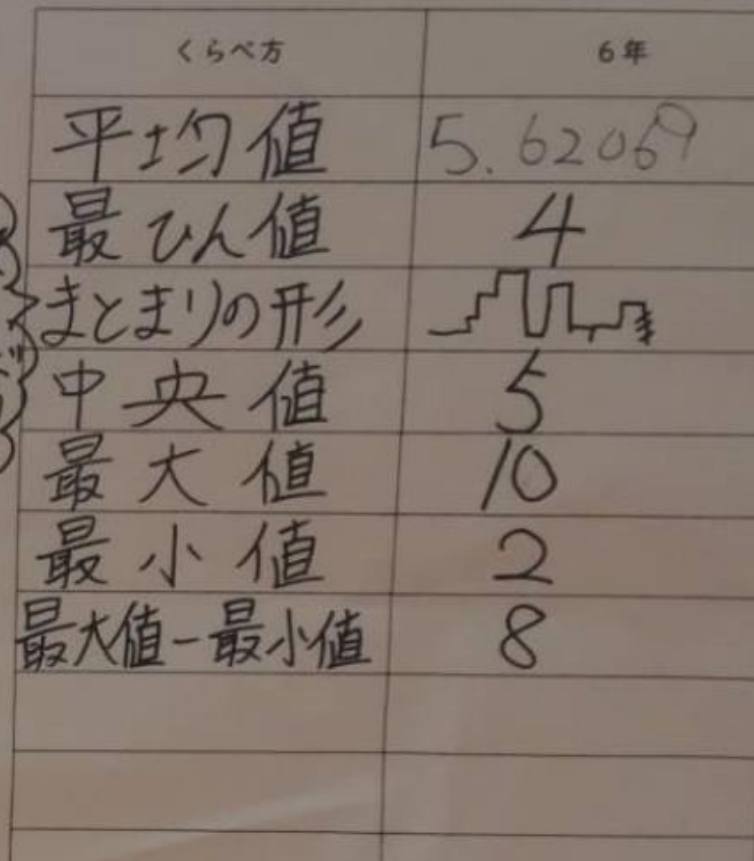 くらべ方 6年
平均値 5.62069
最ひん値 4
まとまりの形
中央値 5
最大値 10
最小値 2
最大値-最小値 8